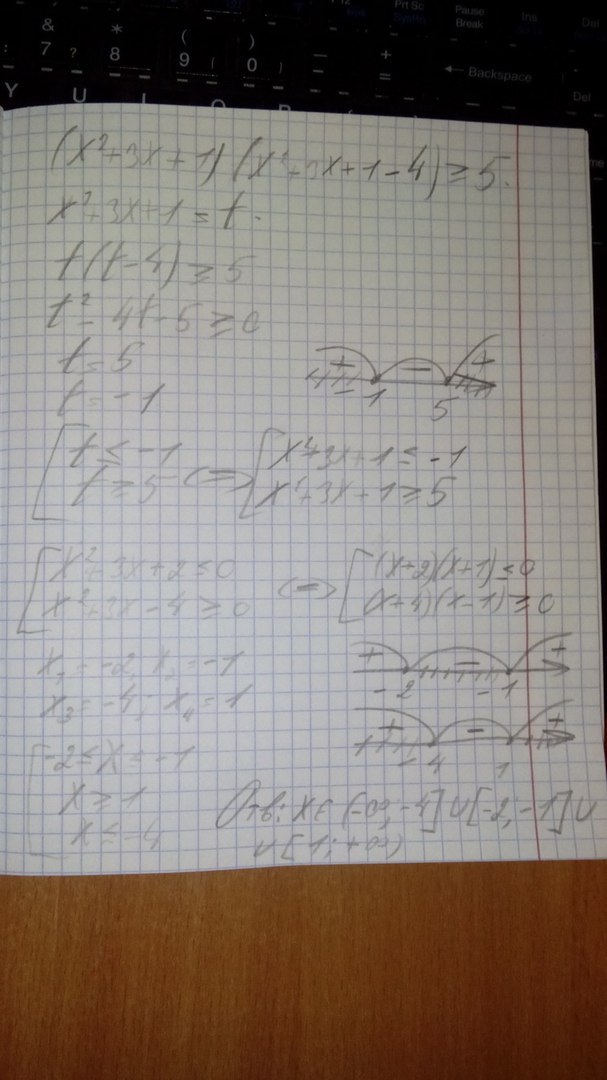 Prt Sc
Pause
Break
Ins
Del
&
7
*
8
(
9
)
0
+
=
Backspace
Del
Y U
(x²+3x+1)(x²+3x+1-4)≥5.
x²+3x+1=t.
t(t-4)≥5
t²-4t-5≥0
t=5
t=-1
+ - +
-1 5
[ t≤-1
t≥5 <=> [ x²+3x+1≤-1
x²+3x+1≥5
[ x²+3x+2≤0
x²+3x-4≥0 <=> [ (x+2)(x+1)≤0
(x+4)(x-1)≥0
x₁=-2, x₂=-1
x₃=-4; x₄=1
+ - +
-2 -1
+ - +
-4 1
[ -2≤x≤-1
x≥1
x≤-4
Отв: x∈(-∞;-4]∪[-2;-1]∪
∪[1;+∞)